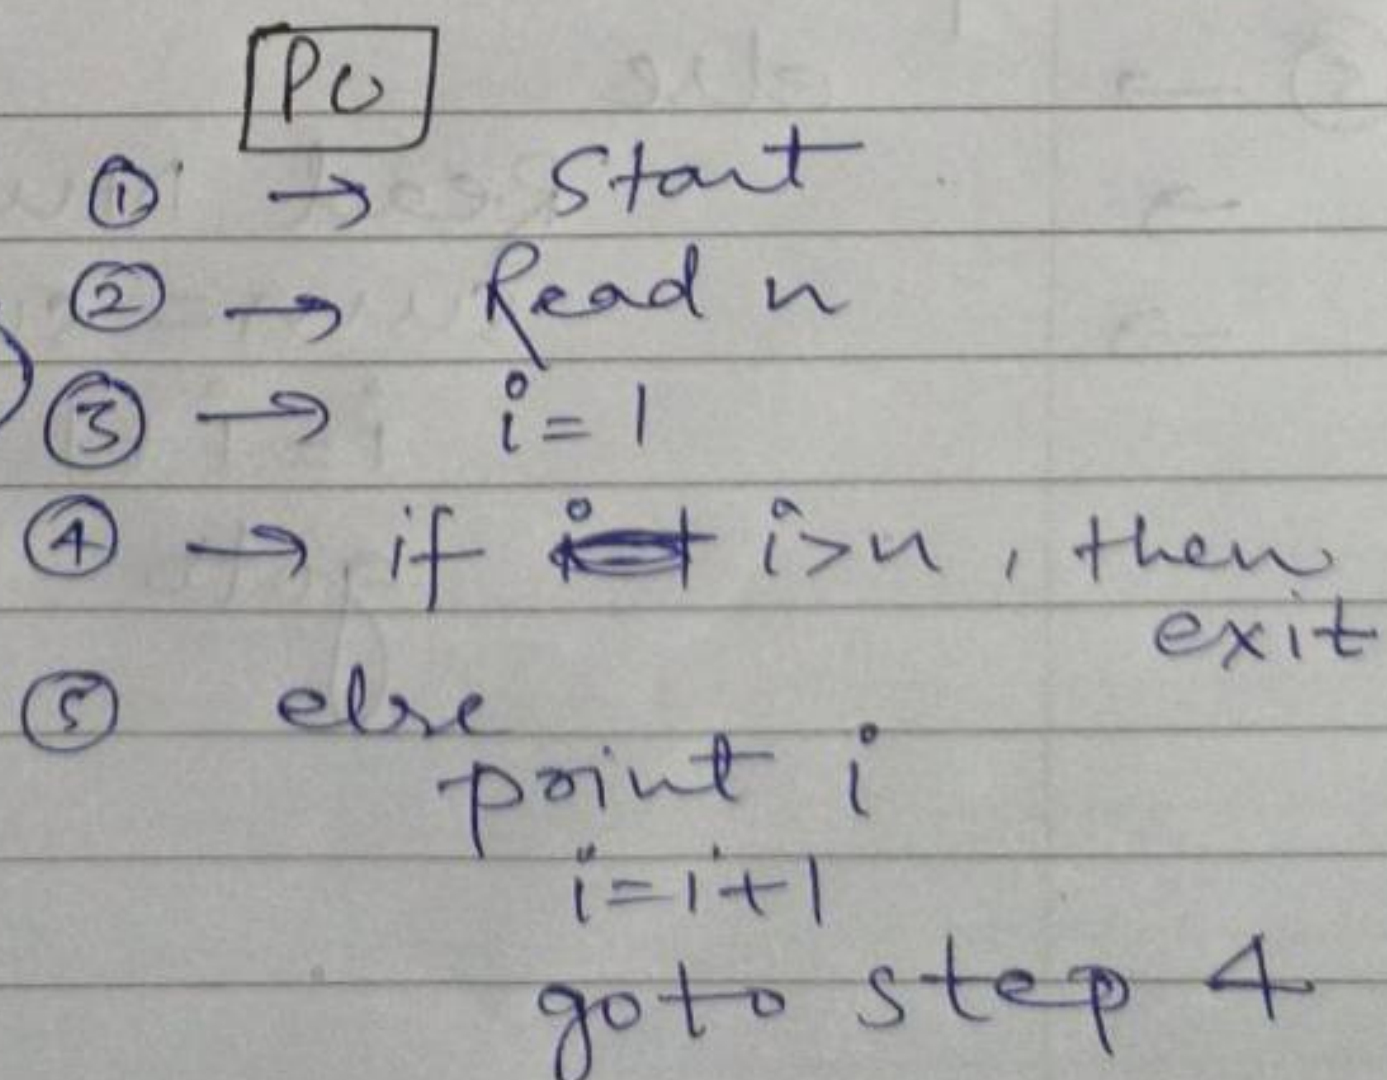 PU
① → Start
② → Read n
③ → i = 1
④ → if i>n, then
exit
⑤ else
print i
i=i+1
goto step 4